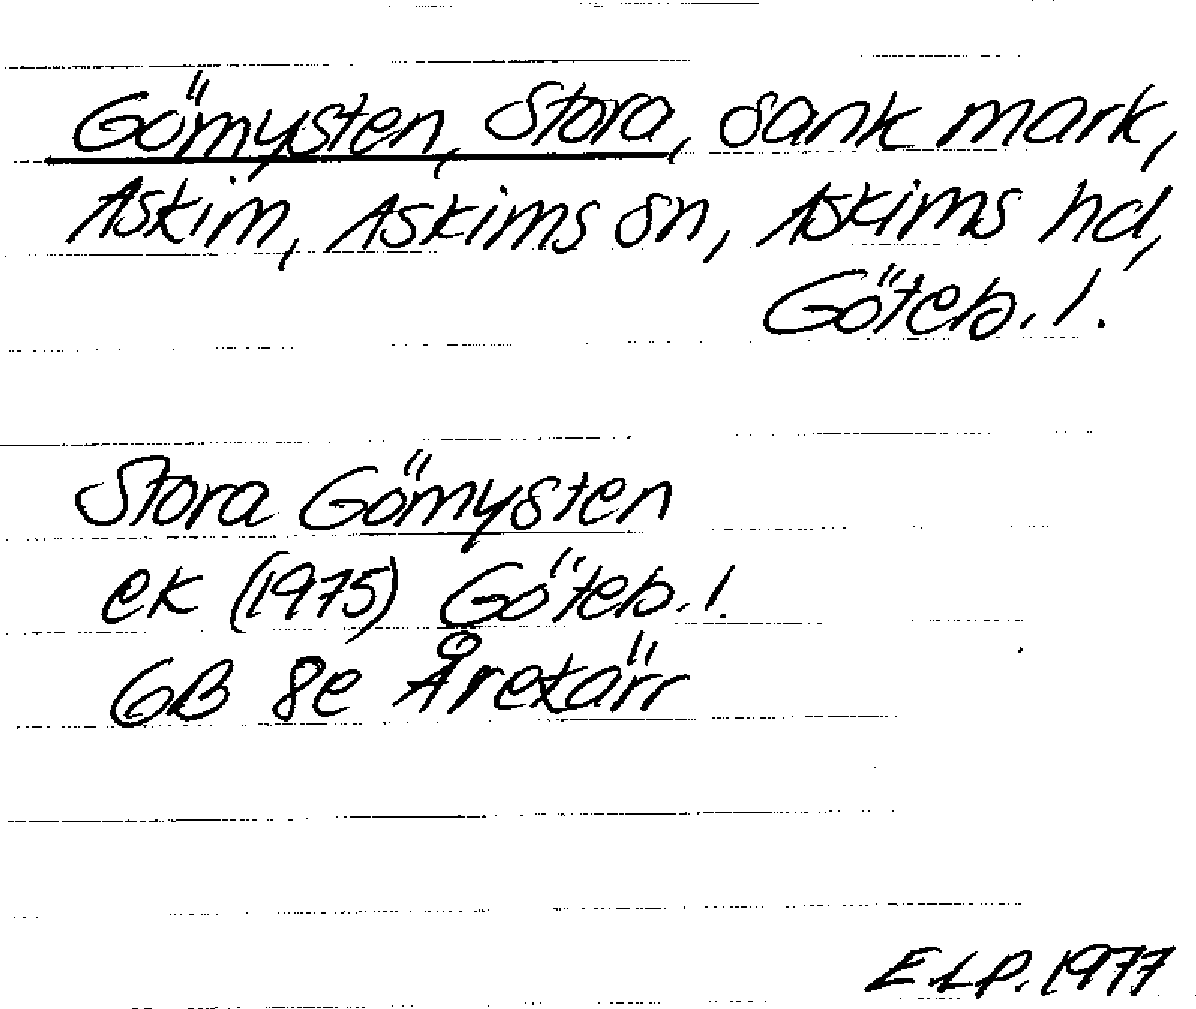 Gömysten, Stora, sank mark,
Askim, Askims sn, Askims hd,
Göteb. l.
Stora Gömysten
ek (1975) Göteb. l.
GB 8e Årekärr
E.L.P. 1977